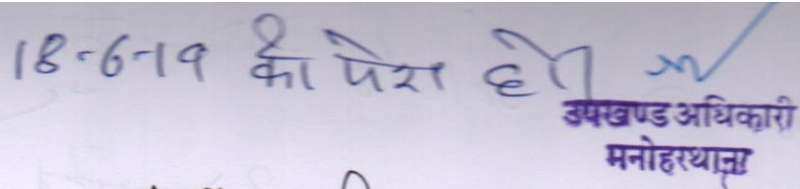 18-6-19 को पेश हो।
उपखण्ड अधिकारी
मनोहरथाना